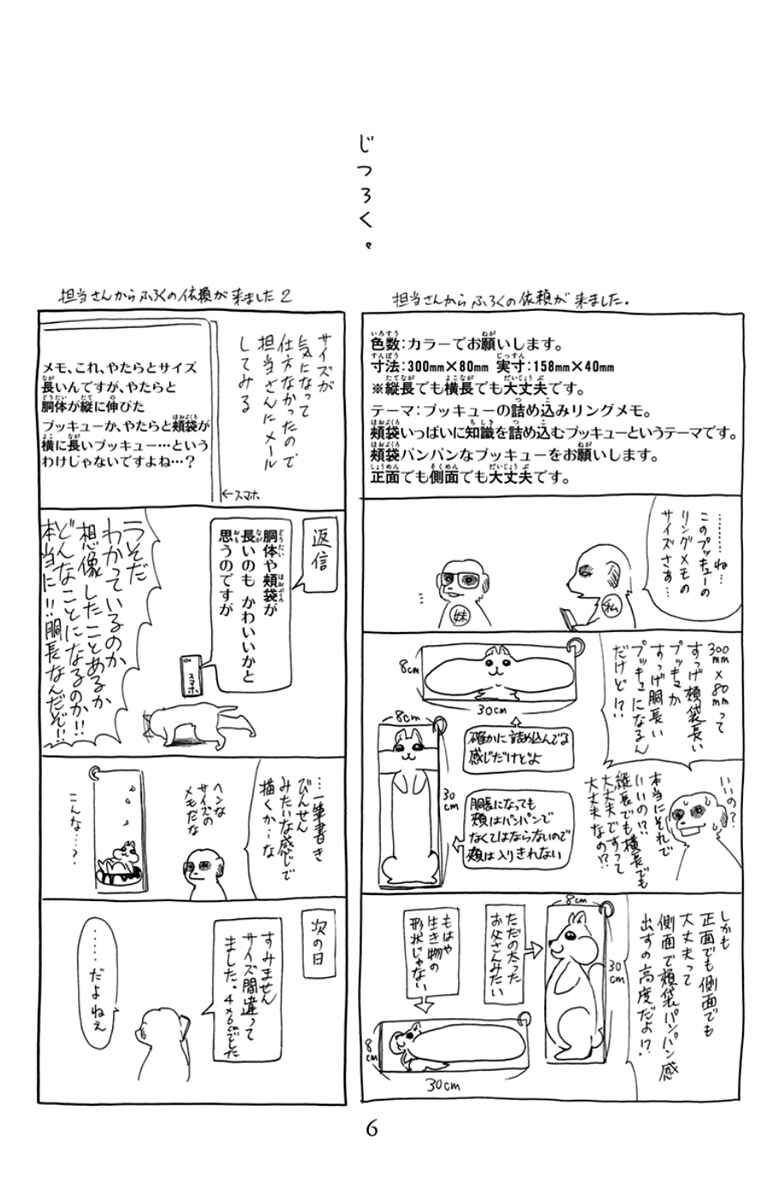 じつろく。
担当さんからふろくの依頼が来ました。
色数:カラーでお願いします。
寸法:300mm×80mm 実寸:158mm×40mm
※縦長でも横長でも大丈夫です。
テーマ:プッキューの詰め込みリングメモ。
頬袋いっぱいに知識を詰め込むプッキューというテーマです。
頬袋パンパンなプッキューをお願いします。
正面でも側面でも大丈夫です。
………ね…
このプッキューの
リングメモの
サイズさぁ…
私
妹
300mm×80mmって
すっげ頬袋長い
プッキュか
すっげ胴長い
プッキュになるん
だけど!?
8cm
30cm
確かに詰め込んでる
感じだけどよ
8cm
30cm
胴長になっても
頬はパンパンで
なくてはならないので
頬は入りきれない
いいの?
本当にそれで
いいの!?
縦長でも横長でも
大丈夫ですって
大丈夫なの!?
しかも
正面でも側面でも
大丈夫って
側面で頬袋パンパン感
出すの高度だよ!?
8cm
30cm
ただの太った
お父さんみたい
もはや
生き物の
形状じゃない
8cm
30cm
担当さんからふろくの依頼が来ました2
サイズが
気になって
仕方なかったので
担当さんにメール
してみる
メモ、これ、やたらとサイズ
長いんですが、やたらと
胴体が縦に伸びた
プッキューか、やたらと頬袋が
横に長いプッキュー…という
わけじゃないですよね…?
←スマホ
返信
胴体や頬袋が
長いのも かわいいかと
思うのですが
スマホ
うそだ
わかっているのか
想像したことあるか
どんなことになるのか!!
本当に!!胴長なんだぞ!!
…一筆書き
びんせん
みたいな感じで
描くか…な
ヘンな
サイズの
メモだな
こんな…?
次の日
すみません
サイズ間違って
ました。4×6cmでした
……だよねぇ
6